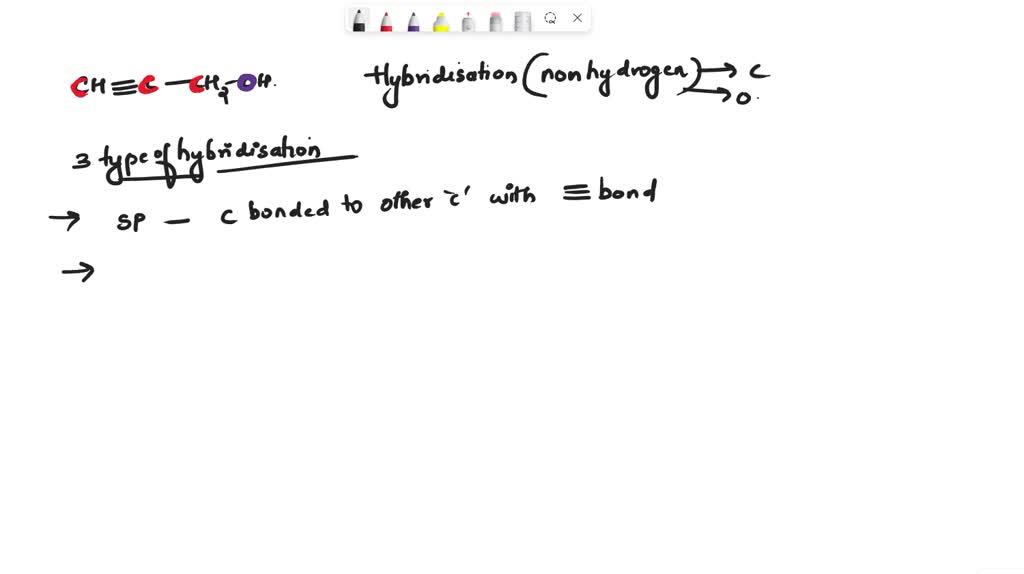 CH≡C—CH₂—OH.
Hybridisation (non hydrogen) → C
→ O.
3 type of hybridisation
→ SP — C bonded to other 'c' with ≡ bond
→